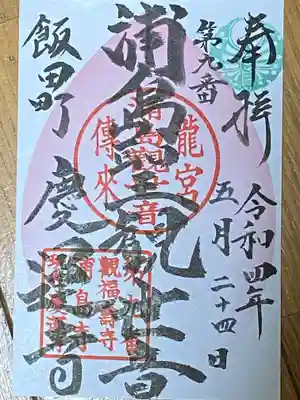 奉拝
第九番
令和四年
五月二十四日
浦島観世音
龍宮
傳來
浦島観世音
飯田町
慶福寺
観福壽寺
浦島寺